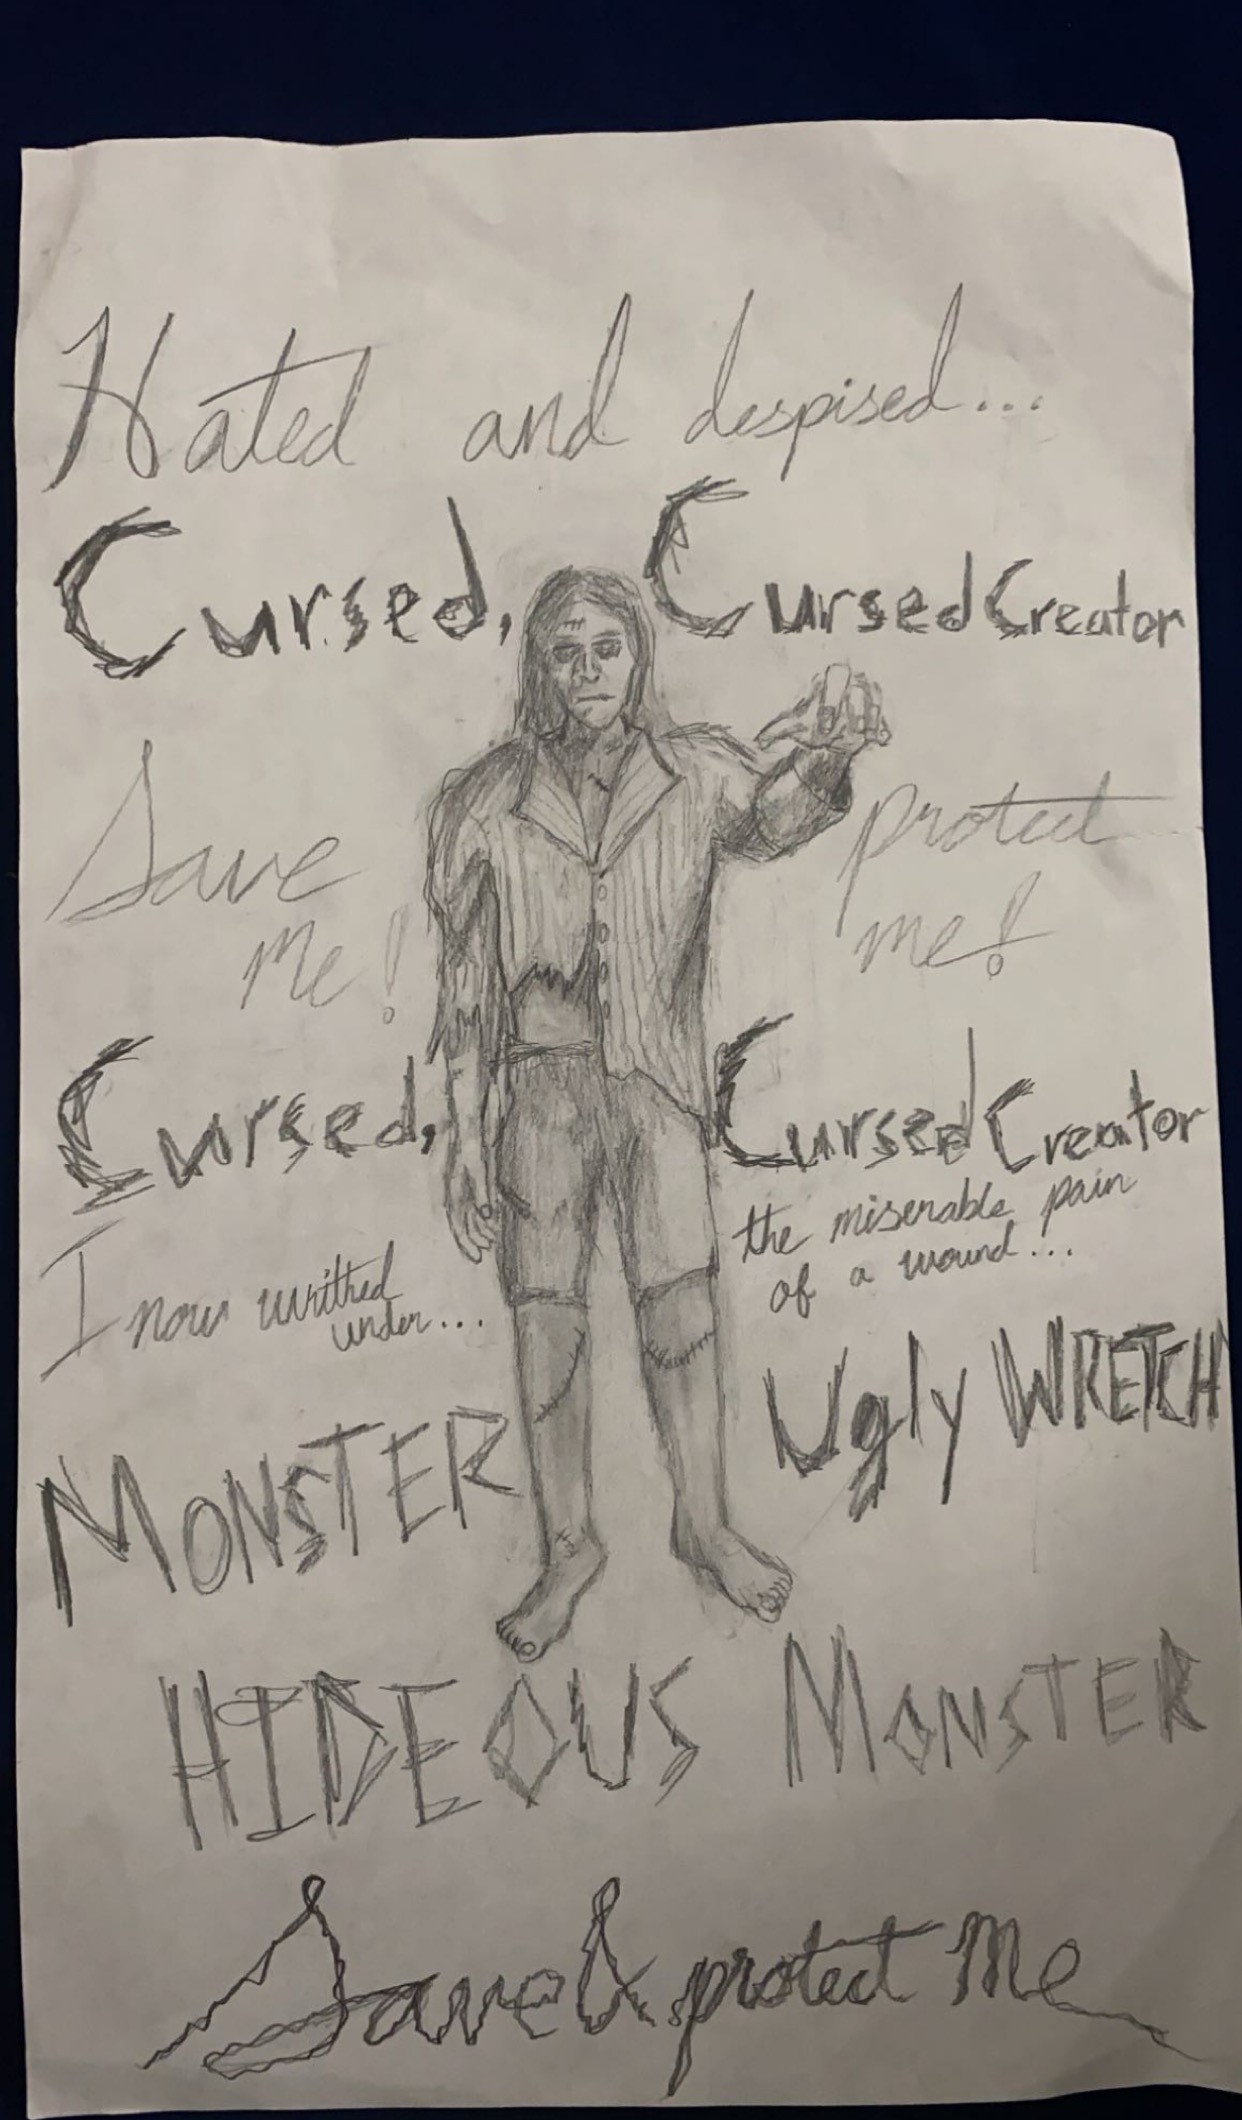 Hated and despised...
Cursed, Cursed Creator
Save me!
protect me!
Cursed, Cursed Creator
I now writhed under...
the miserable pain of a wound...
MONSTER
Ugly WRETCH
HIDEOUS MONSTER
Save & protect me